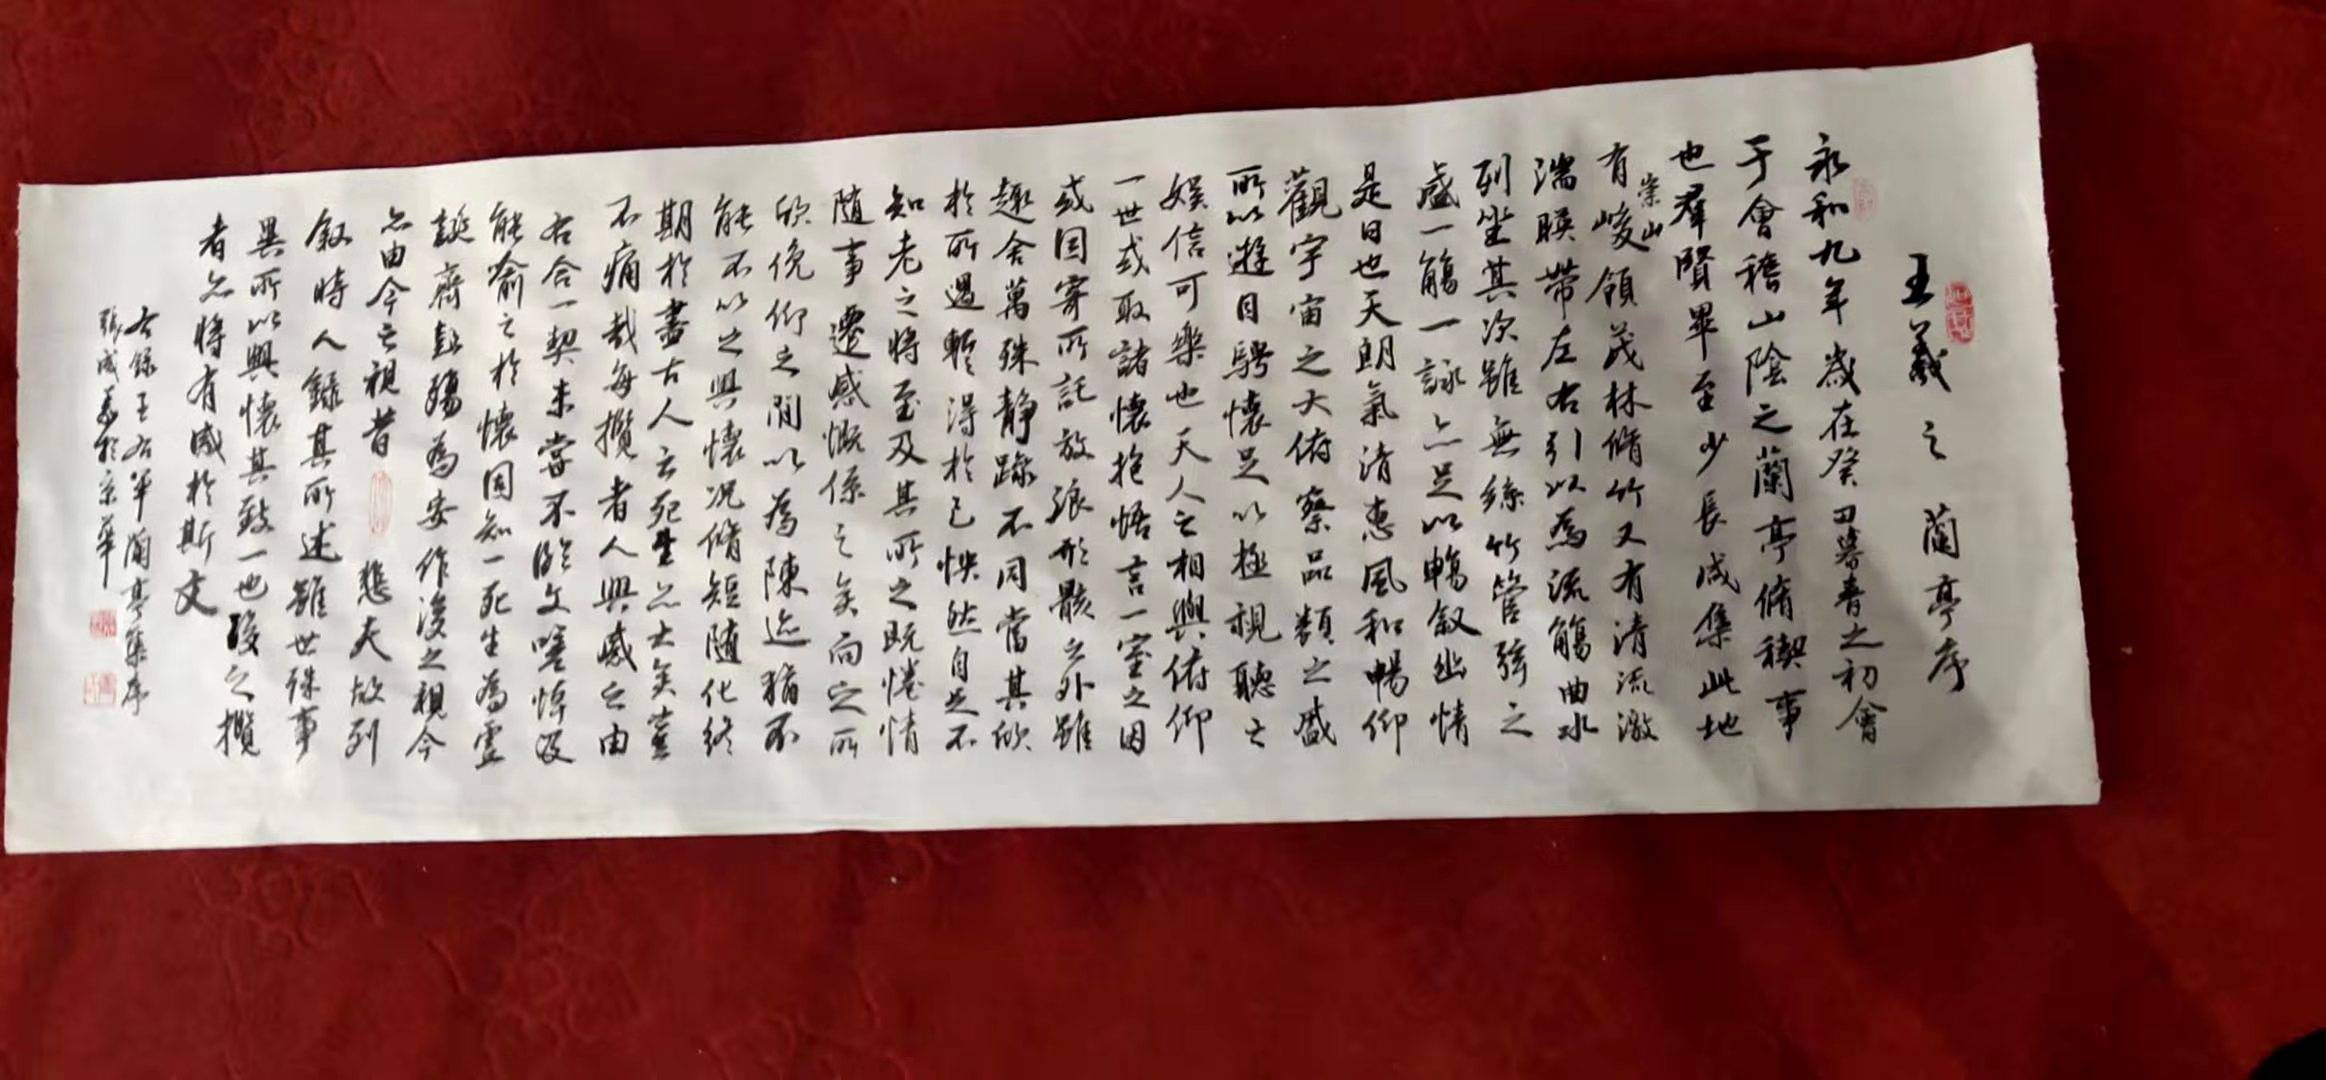 王羲之蘭亭序
永和九年歲在癸丑暮春之初會
于會稽山陰之蘭亭脩禊事
也羣賢畢至少長咸集此地
有崇山峻領茂林脩竹又有清流激
湍暎帶左右引以為流觴曲水
列坐其次雖無絲竹管弦之
盛一觴一詠亦足以暢叙幽情
是日也天朗氣清惠風和暢仰
觀宇宙之大俯察品類之盛
所以遊目騁懷足以極視聽之
娛信可樂也夫人之相與俯仰
一世或取諸懷抱悟言一室之内
或因寄所託放浪形骸之外雖
趣舍萬殊静躁不同當其欣
於所遇暫得於己怏然自足不
知老之將至及其所之既惓情
随事遷感慨係之矣向之所
欣俛仰之間以為陳迹猶不
能不以之興懷况脩短随化終
期於盡古人云死生亦大矣豈
不痛哉每攬昔人興感之由
若合一契未嘗不臨文嗟悼不
能喻之於懷固知一死生為虛
誕齊彭殤為妄作後之視今
亦由今之視昔 悲夫故列
叙時人錄其所述雖世殊事
異所以興懷其致一也後之攬
者亦將有感於斯文
右錄王右軍蘭亭集序
張成義於京華